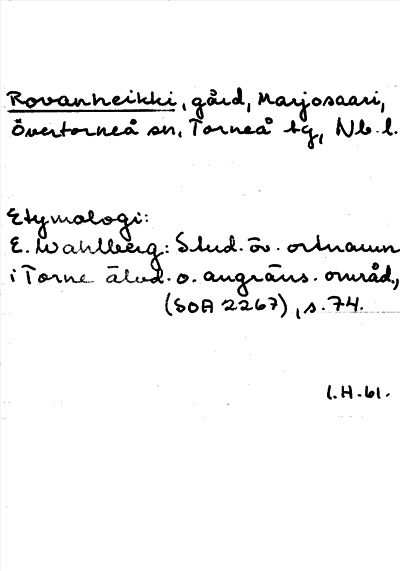 Rovanheikki, gård, Marjosaari,
Övertorneå sn, Torneå tg, Nb. l.
Etymologi:
E. Wahlberg: Stud. öv. ortnamn
i Torne älvd. o. angräns. områd.,
(SOA 2267), s. 74.
I.H. 61.